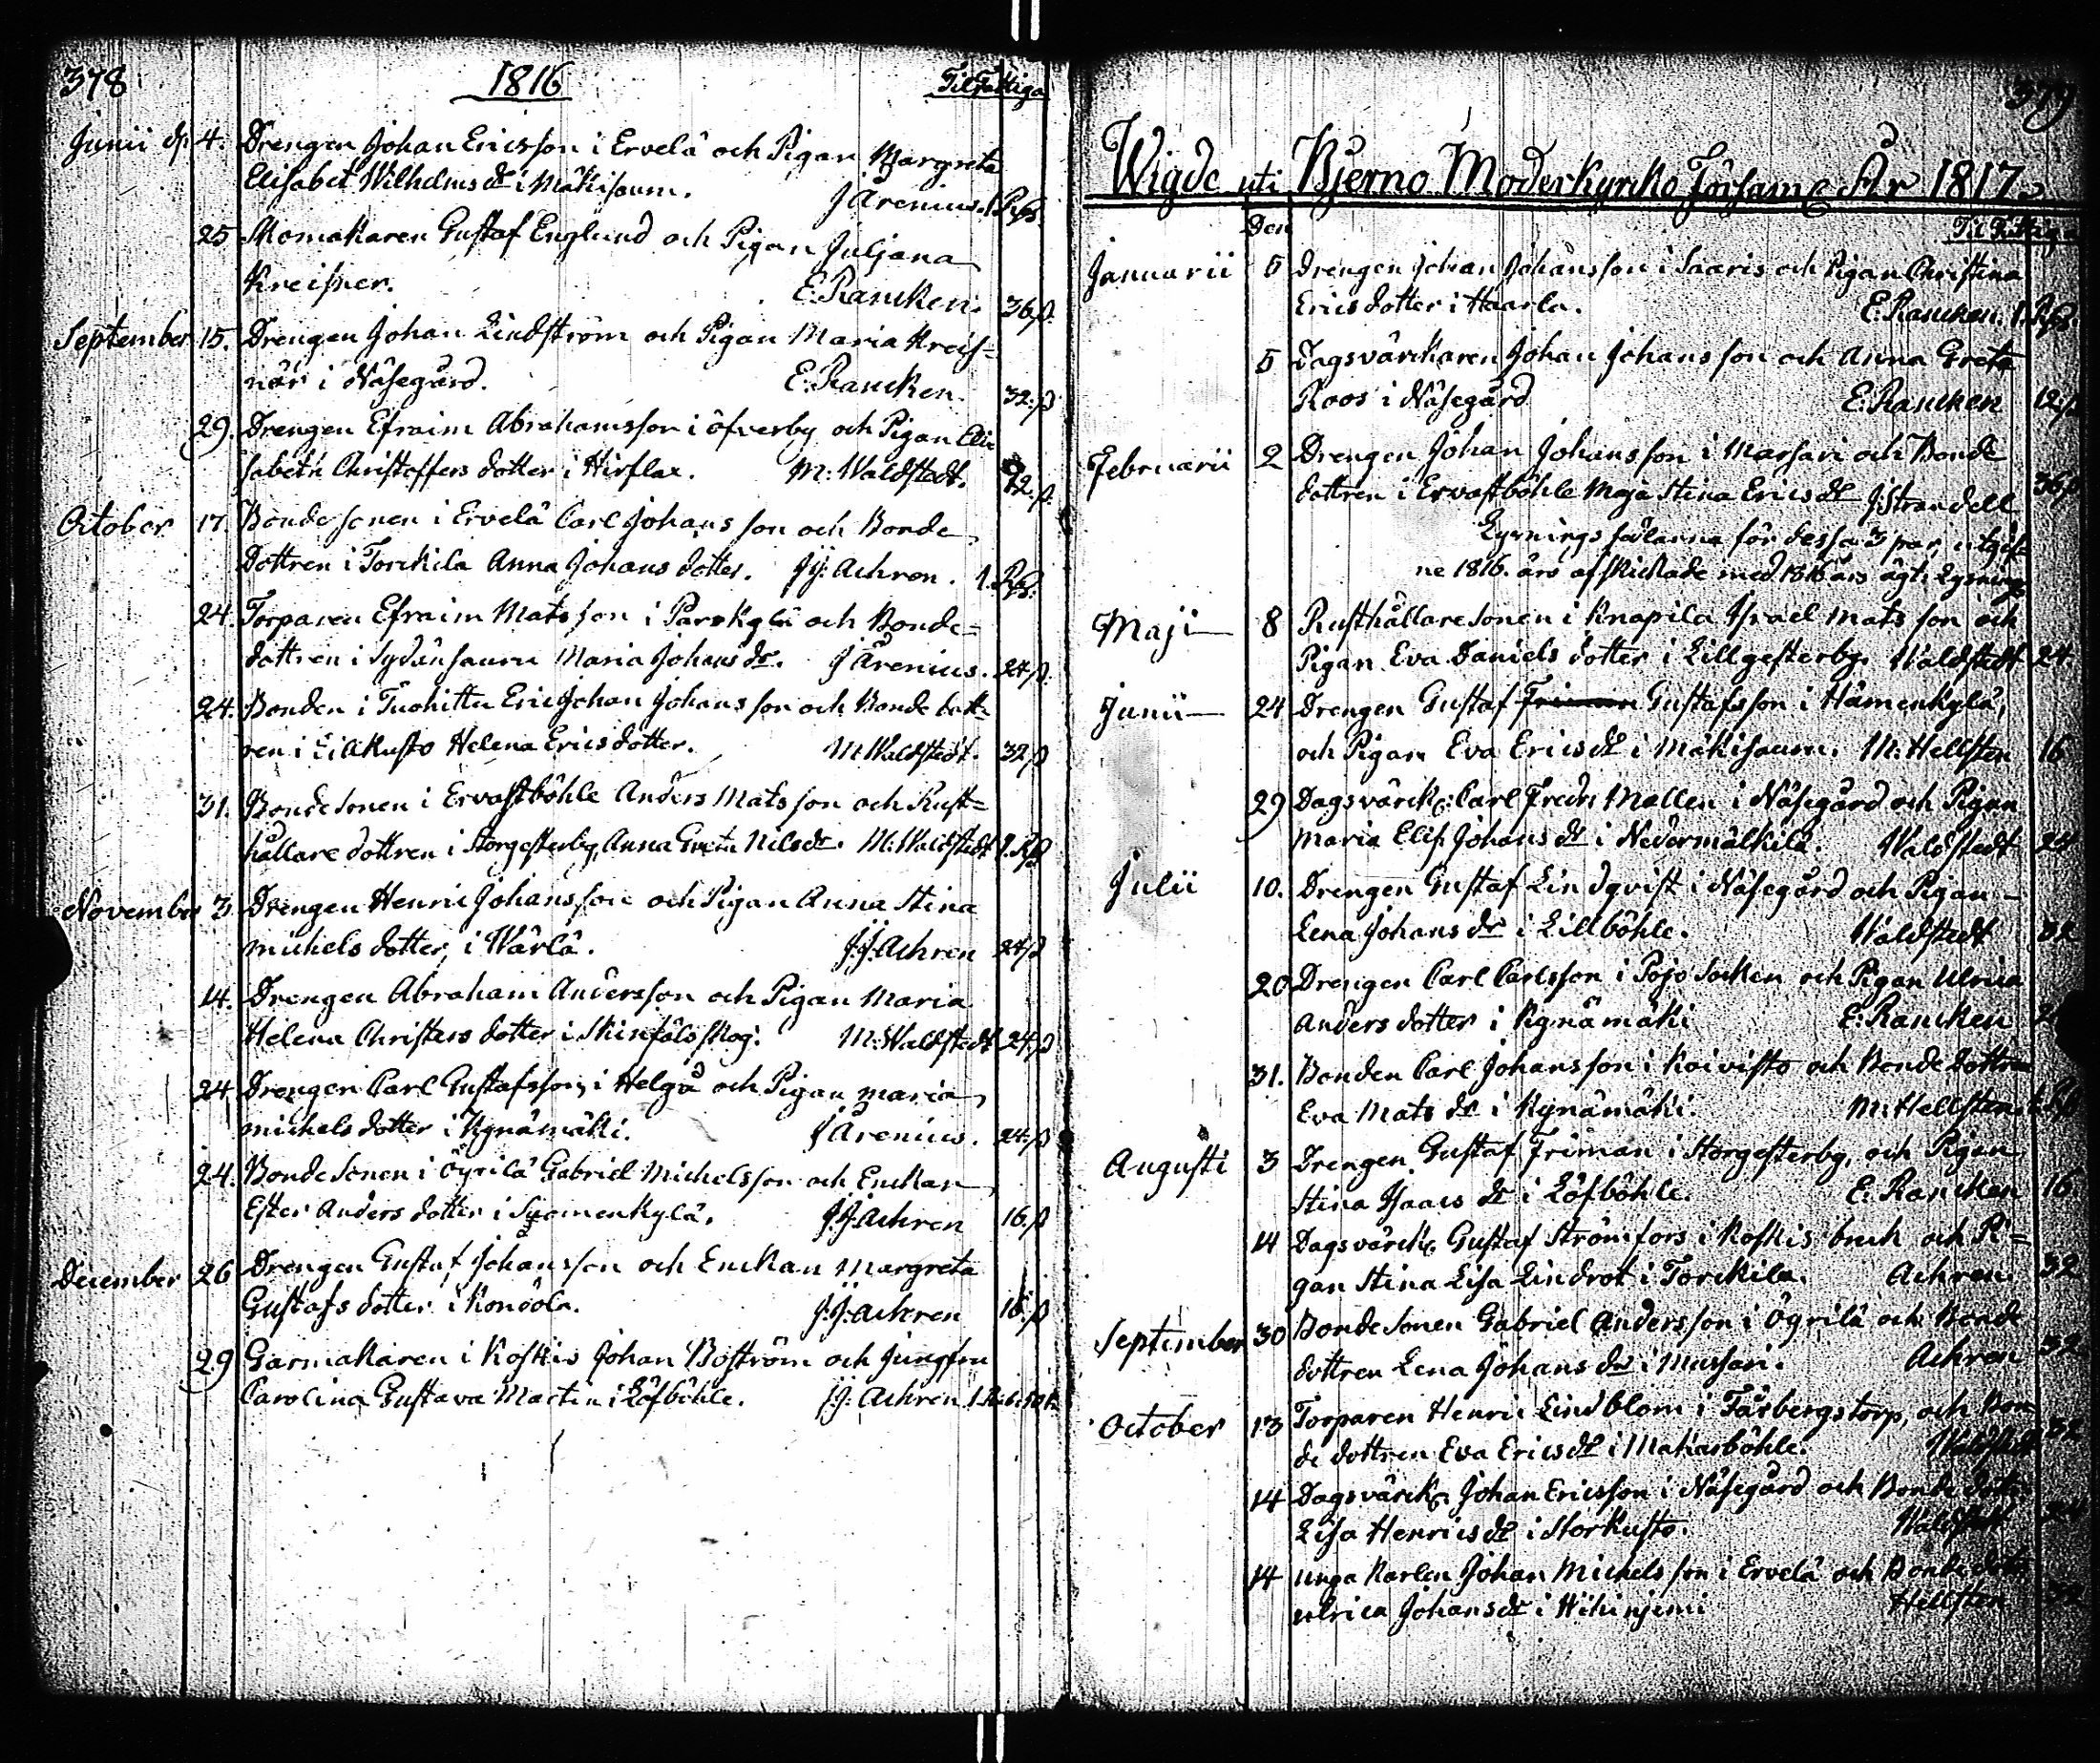 378 1816 Til Fattiga
Junii d. 4. Drengen Johan Ericsson i Ervelä och Pigan Margreta
Elisabet Wilhelms dr i Mäkisaum. J Arenius. 1 Rß.
25 Skomakaren Gustaf Englund och Pigan Juljana
Kreisner. E: Rancken. 36.ß.
September 15. Drengen Johan Lindström och Pigan Maria Kreis=
när i Näsegård. E: Rancken. 32.ß
29. Drengen Efraim Abrahamsson i öfverby och Pigan Eli
sabeth Christoffers dotter i Hirflax. M: Waldstedt. 72.ß.
October 17. Bonde sonen i Ervelä Carl Johans son och Bonde
Dottren i Torckila Anna Johans dotter. JJ: Achren. 1. Rß.
24. Torparen Efraim Matsson i Parskylä och Bonde=
dottren i Sydänsauru Maria Johans dr. J Arenius. 24ß.
24. Bonden i Tuohittu Eric Johan Johansson och Bonde dott
ren i Lillkusto Helena Ericsdotter. M Waldstedt. 32ß
31. Bondesonen i Ervastböhle Anders Matsson och Rust=
hållare dottren i Storgesterby, Anna Greta Nilsdr. M: Waldstedt 1. Rß
November 3. Drengen Henric Johansson och Pigan Anna Stina
michels dotter, i Wärlä. J:J: Achren 24ß
14. Drengen Abraham Andersson och Pigan Maria
Helena Christers dotter i Skinfäls skog. M: Waldstedt 24.ß
24 Drengen Carl Gustafsson, i Helgå och Pigan maria
michels dotter i Kynämäki. J Arenius. 24.ß
24. Bonde Sonen i Ögrilä Gabriel Michelsson och Enckan
Ester Anders dotter i Suomenkylä. J:J: Achren 16.ß
December 26 Drengen Gustaf Johansson och Enckan Margreta
Gustafs dotter i Konoola. J:J: Achren 16.ß
29 Garmakaren i Koskis Johan Boström och Jungfru
Carolina Gustava Martin i Löfböhle. J:J: Achren 1. Rub. 50 k.
379
Wigde uti Bjerno Moderkyrko Församg År 1817.
Den Til Fattiga
Januarii 5 Drengen Johan Johansson i Saaris och Pigan Christina
Ericsdotter i Haarla. E: Rancken. 1. Rß.
5 Dagsvärckaren Johan Johansson och Anna Greta
Roos i Näsegård E: Rancken 12.ß
Februarii 2 Drengen Johan Johansson i Marsari och Bonde
dottren i Ervastböhle Maja Stina Ericsdr J: Strandell 36.ß
Lysnings sedlarna för dessa 3 par, utgif=
ne 1816. äro afskickade med 1816 års ägt. Lysnings
Maji 8 Rusthållare Sonen i Knapila Israel Matsson och
Pigan Eva Daniels dotter i Lillgesterby. Waldstedt 24
Junii 24 Drengen Gustaf Friman Gustafsson i Hämenkylä,
och Pigan Eva Ericsdr i Mäkisaum. M: Hellsten 16
29 Dagsvärck: Carl Fredr: Mellen i Näsegård och Pigan
Maria Elis: Johans dr i Nedermälkilä. Waldstedt 24
Julii 10. Drengen Gustaf Lindqvist i Näsegård och Pigan
Lena Johans dr i Lillböhle. Waldstedt 32
20 Drengen Carl Carlsson i Pojo Socken och Pigan Ulrica
Anders dotter i Kynämäki E: Rancken
31. Bonden Carl Johansson i Koivisto och Bonde dottren
Eva Mats dr i Kynämäki. M: Hellsten
Augusti 3 Drengen Gustaf Friman i Storgesterby, och Pigan
Stina Isaacs dr i Löfböhle. E: Rancken 16
14 Dagsvärck: Gustaf Strömfors i Koskis bruk och Pi=
gan Stina Lisa Lindrot i Torckila. Achren 32
September 30 Bonde Sonen Gabriel Andersson i Ögrilä och Bonde
dottren Lena Johans dr i Mussari. Achren 32
October 13 Torparen Henric Lindblom i Färbergstorp, och Bon
de dottren Eva Ericsdr i Makarböhle. Waldstedt 32
14 Dagsvärck: Johan Ericsson i Näsegård och Bonde dott:
Lisa Henricsdr i Storkusto. Waldstedt 24
14 unga Karlen Johan Michelsson i Ervelä och Bonde dott
Ulrica Johansdr i Wihiniemi Hellsten 32